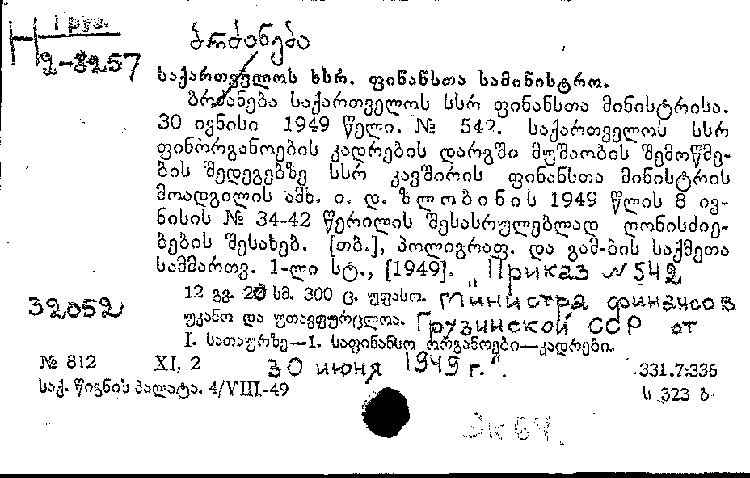 1 груз.
2-3257
ბრძანება
საქართველოს სსრ. ფინანსთა სამინისტრო.
ბრძანება საქართველოს სსრ ფინანსთა მინისტრისა.
30 ივნისი 1949 წელი. № 542. საქართველოს სსრ
ფინორგანოების კადრების დარგში მუშაობის შემოწმე-
ბის შედეგებზე სსრ კავშირის ფინანსთა მინისტრის
მოადგილის ამხ. ი. დ. ზლობინის 1949 წლის 8 ივ-
ნისის № 34-42 წერილის შესასრულებლად ღონისძიე-
ბების შესახებ. [თბ.], პოლიგრაფ. და გამ-ბის საქმეთა
სამმართვ. 1-ლი სტ., [1949]. "Приказ N 542
32052
12 გვ. 20 სმ. 300 ც. უფასო. Министра финансов
უკანო და უთავფურცლოა. Грузинской ССР от
I. სათაურზე—1. საფინანსო ორგანოები—კადრები.
№ 812 XI, 2 30 июня 1949 г.".
331.7:336
საქ. წიგნის პალატა. 4/VIII-49
ს 323 ბ
Эк 64.